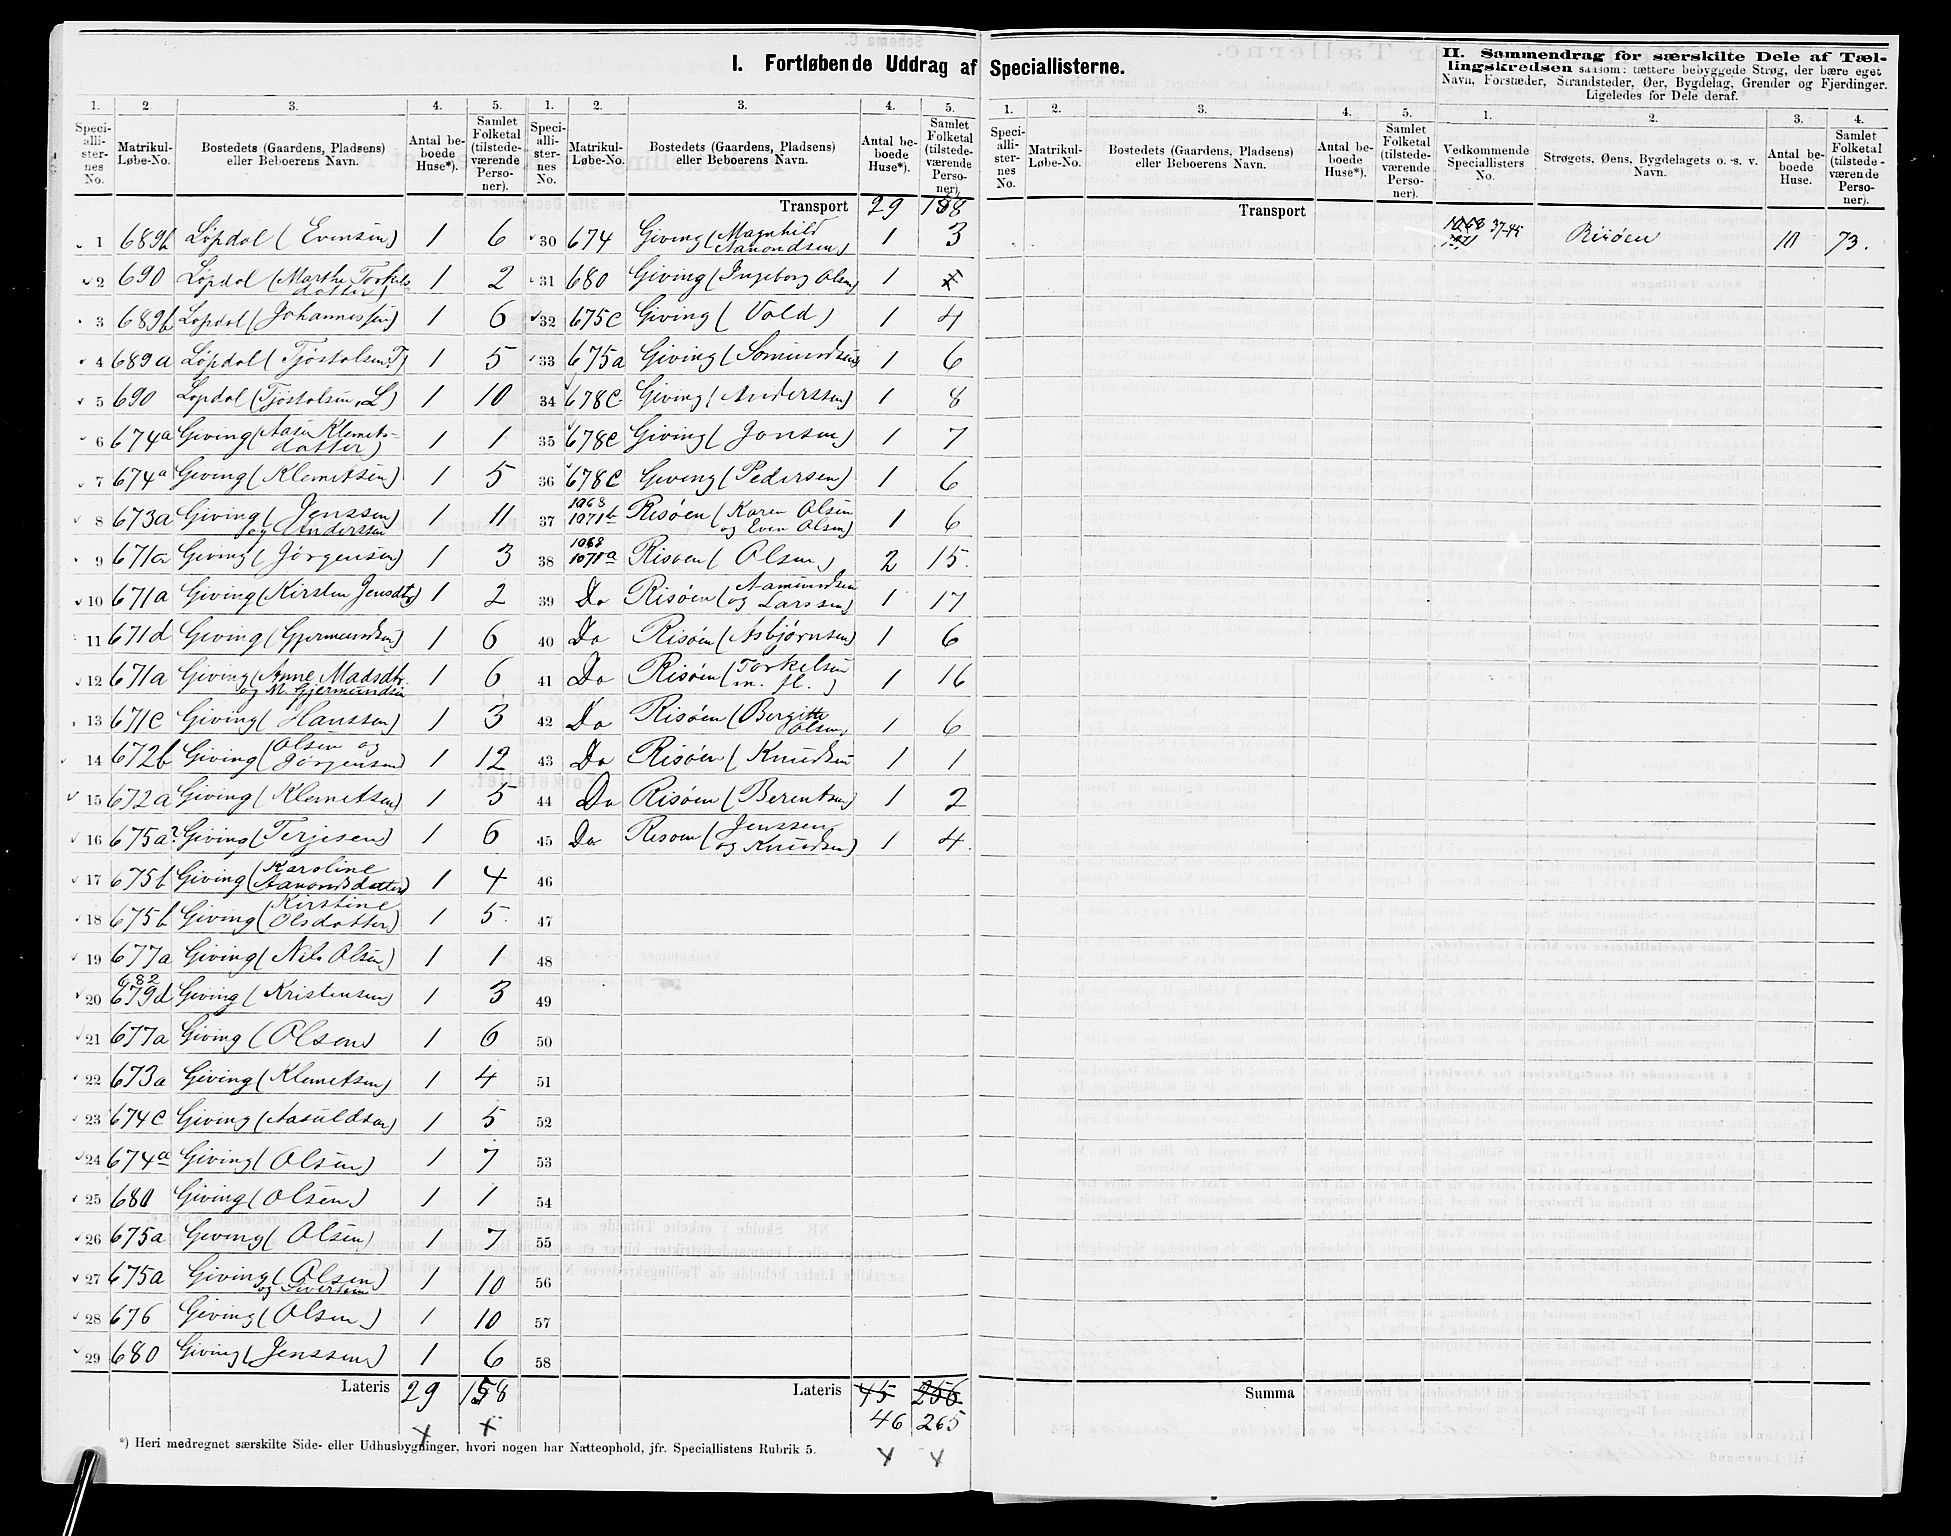 I. Fortløbende Uddrag af Speciallisterne.
II. Sammendrag for særskilte Dele af Tællingskredsen saasom: tættere bebyggede Strøg, der bære eget Navn, Forstæder, Strandsteder, Øer, Bygdelag, Grender og Fjerdinger. Ligeledes for Dele deraf.
1. 2 3. 4. 5. 1. 2. 3. 4. 5.
Speciallisternes No. Matrikul-Løbe-No. Bostedets (Gaardens, Pladsens) eller Beboerens Navn. Antal beboede Huse*). Samlet Folketal (tilstedeværende Personer).
Speciallisternes No. Matrikul-Løbe-No. Bostedets (Gaardens, Pladsens) eller Beboerens Navn. Antal beboede Huse*). Samlet Folketal (tilstedeværende Personer).
1 689b Løpdal (Evensen) 1 6
2 690 Løpdal (Marthe Torkilsdatter) 1 2
3 689b Løpdal (Johannessen) 1 6
4 689a Løpdal (Tjøstolsen, T) 1 5
5 690 Løpdal (Tjøstolsen, L) 1 10
6 674a Giving (Aase Klemetsdatter) 1 1
7 674a Giving (Klemetsen) 1 5
8 673a Giving (Jenssen og Anderssen) 1 11
9 671a Giving (Jørgensen) 1 3
10 671a Giving (Kirsten Jensdtr) 1 2
11 671d Giving (Gjermundsen) 1 6
12 671a Giving (Anne Madsdtr. og M. Gjermundsen) 1 6
13 671c Giving (Hanssen) 1 3
14 672b Giving (Olsen og Jørgensen) 1 12
15 672a Giving (Klemetsen) 1 5
16 675a? Giving (Terjesen) 1 6
17 675b Giving (Karoline Aanonsdatter) 1 4
18 675b Giving (Kirstine Olsdatter) 1 5
19 677a Giving (Nils Olsen) 1 1
20 682 679d Giving (Kristensen) 1 3
21 677a Giving (Olsen) 1 6
22 673a Giving (Klemetsen) 1 4
23 674c Giving (Aasuldsen) 1 5
24 674a Giving (Olsen) 1 7
25 680 Giving (Olsen) 1 1
26 675a Giving (Olsen) 1 7
27 675a Giving (Olsen og Siversen) 1 10
28 676 Giving (Olsen) 1 10
29 680 Giving (Jenssen) 1 6
Lateris 29 158
Transport 29 158
30 674 Giving (Magnhild Aanondsen) 1 3
31 680 Giving (Ingeborg Olsen) 1
32 675c Giving (Vold) 1 4
33 675a Giving (Somundsen) 1 6
34 678c Giving (Anderssen) 1 8
35 678c Giving (Jonsen) 1 7
36 678c Giving (Pedersen) 1 6
37 1068 1071b Risøen (Karen Olsen og Even Olsen) 1 6
38 1068 1071a Risøen (Olsen) 2 15
39 Do Risøen (Aamundsen og Larssen) 1 17
40 Do Risøen (Asbjørnsen) 1 6
41 Do Risøen (Torkelsen m. fl.) 1 16
42 Do Risøen (Bergitte Olsen) 1 6
43 Do Risøen (Knudsen 1 1
44 Do Risøen (Berentsen) 1 2
45 Do Risøen (Jenssen og Knudsen) 1 4
46
47
48
49
50
51
52
53
54
55
56
57
58
Lateris 45 256
46 265
*) Heri medregnet særskilte Side- eller Udhusbygninger, hvori nogen har Natteophold, jfr. Speciallistens Rubrik 5.
1. 2. 3. 4. 5. 1. 2. 3. 4.
Speciallisternes No. Matrikul-Løbe-No. Bostedets (Gaardens, Pladsens) eller Beboerens Navn. Antal beboede Huse*). Samlet Folketal (tilstedeværende Personer).
Vedkommende Speciallisters No. Strøgets, Øens, Bygdelagets o. s. v. Navn. Antal beboede Huse. Samlet Folketal (tilstedeværende Personer).
Transport
1068 1071 37-45 Risøen 10 73.
Summa